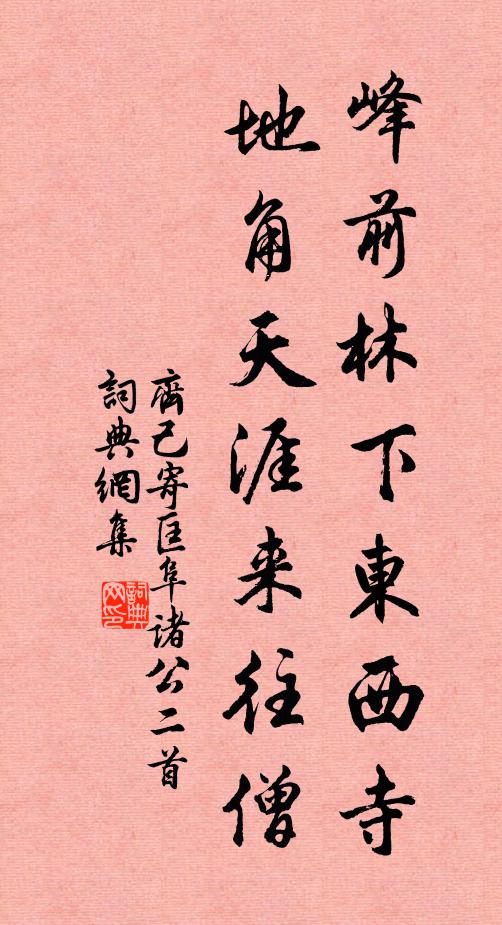 峰前林下東西寺
地角天涯来往僧
齊己寄匡阜诸公二首
詞典網集
詞典网印